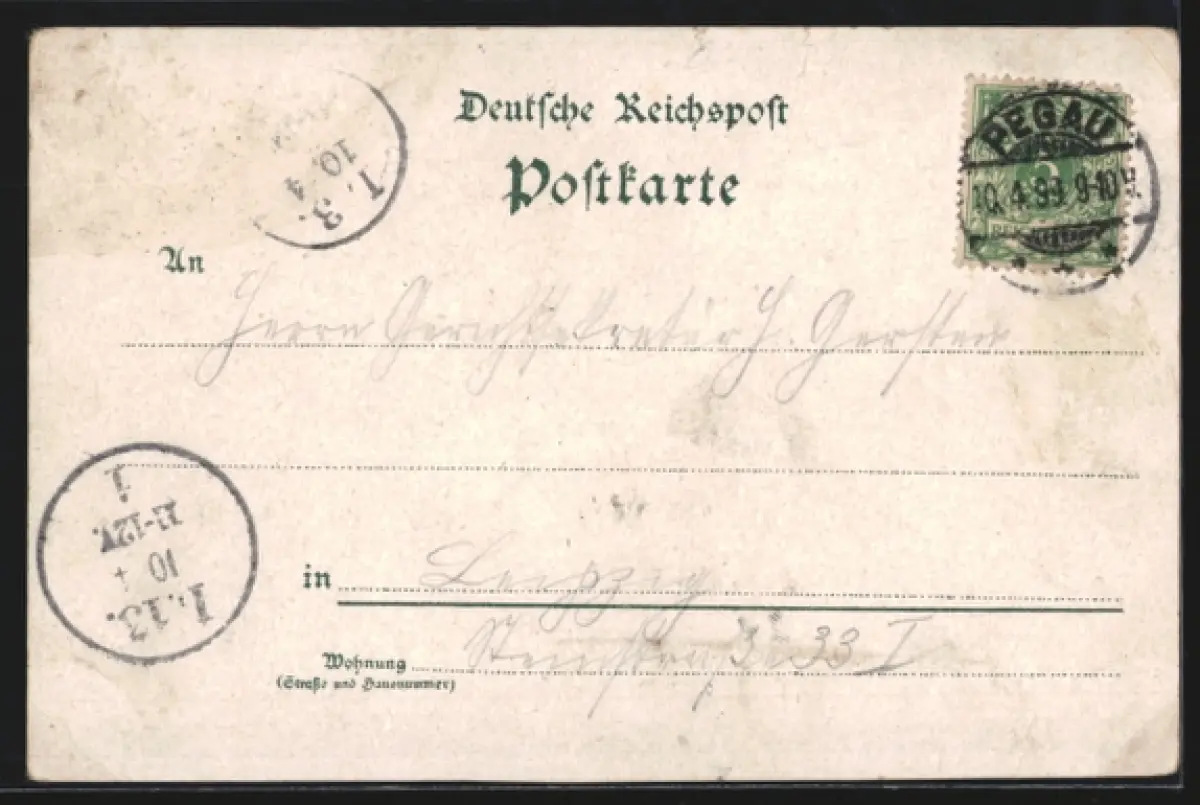 Deutsche Reichspost
Postkarte
PEGAU
10. 4. 99. 9-10 V.
L. 3.
10. 4
An
Herrn Gerichtssekretär H. Gersten
in Leipzig
Wohnung 33 I
(Straße und Hausnummer)
L. 13.
10 4
11-12V.
1